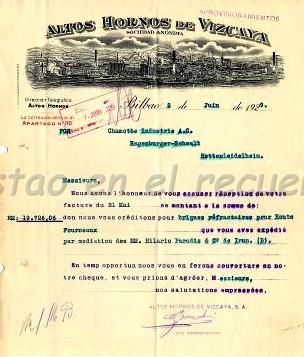 APROVISIONAMIENTOS
ALTOS HORNOS DE VIZCAYA
SOCIEDAD ANÓNIMA
Dirección Telegráfica
ALTOS HORNOS
APARTADO Nº 116
Bilbao 5 de Juin de 19
Chamotte Industrie A.G.
Hagenburger-Schwalb
Hettenleidelheim.
Messieurs,
Nous avons l'honneur de vous accuser réception de votre
facture du 31 Mai se montant à la somme de:
RM: 19.726,06 don nous vous créditons pour briques réfractaires pour Hauts
Fourneaux que vous avez expédié
par mediation des MM. Hilario Paradis & Cº de Irun, (B).
En temp opportun nous vous en ferons couverture en no-
tre cheque, et vous prions d'agréer, Messieurs,
nos salutations empressées.
ALTOS HORNOS DE VIZCAYA, S. A.